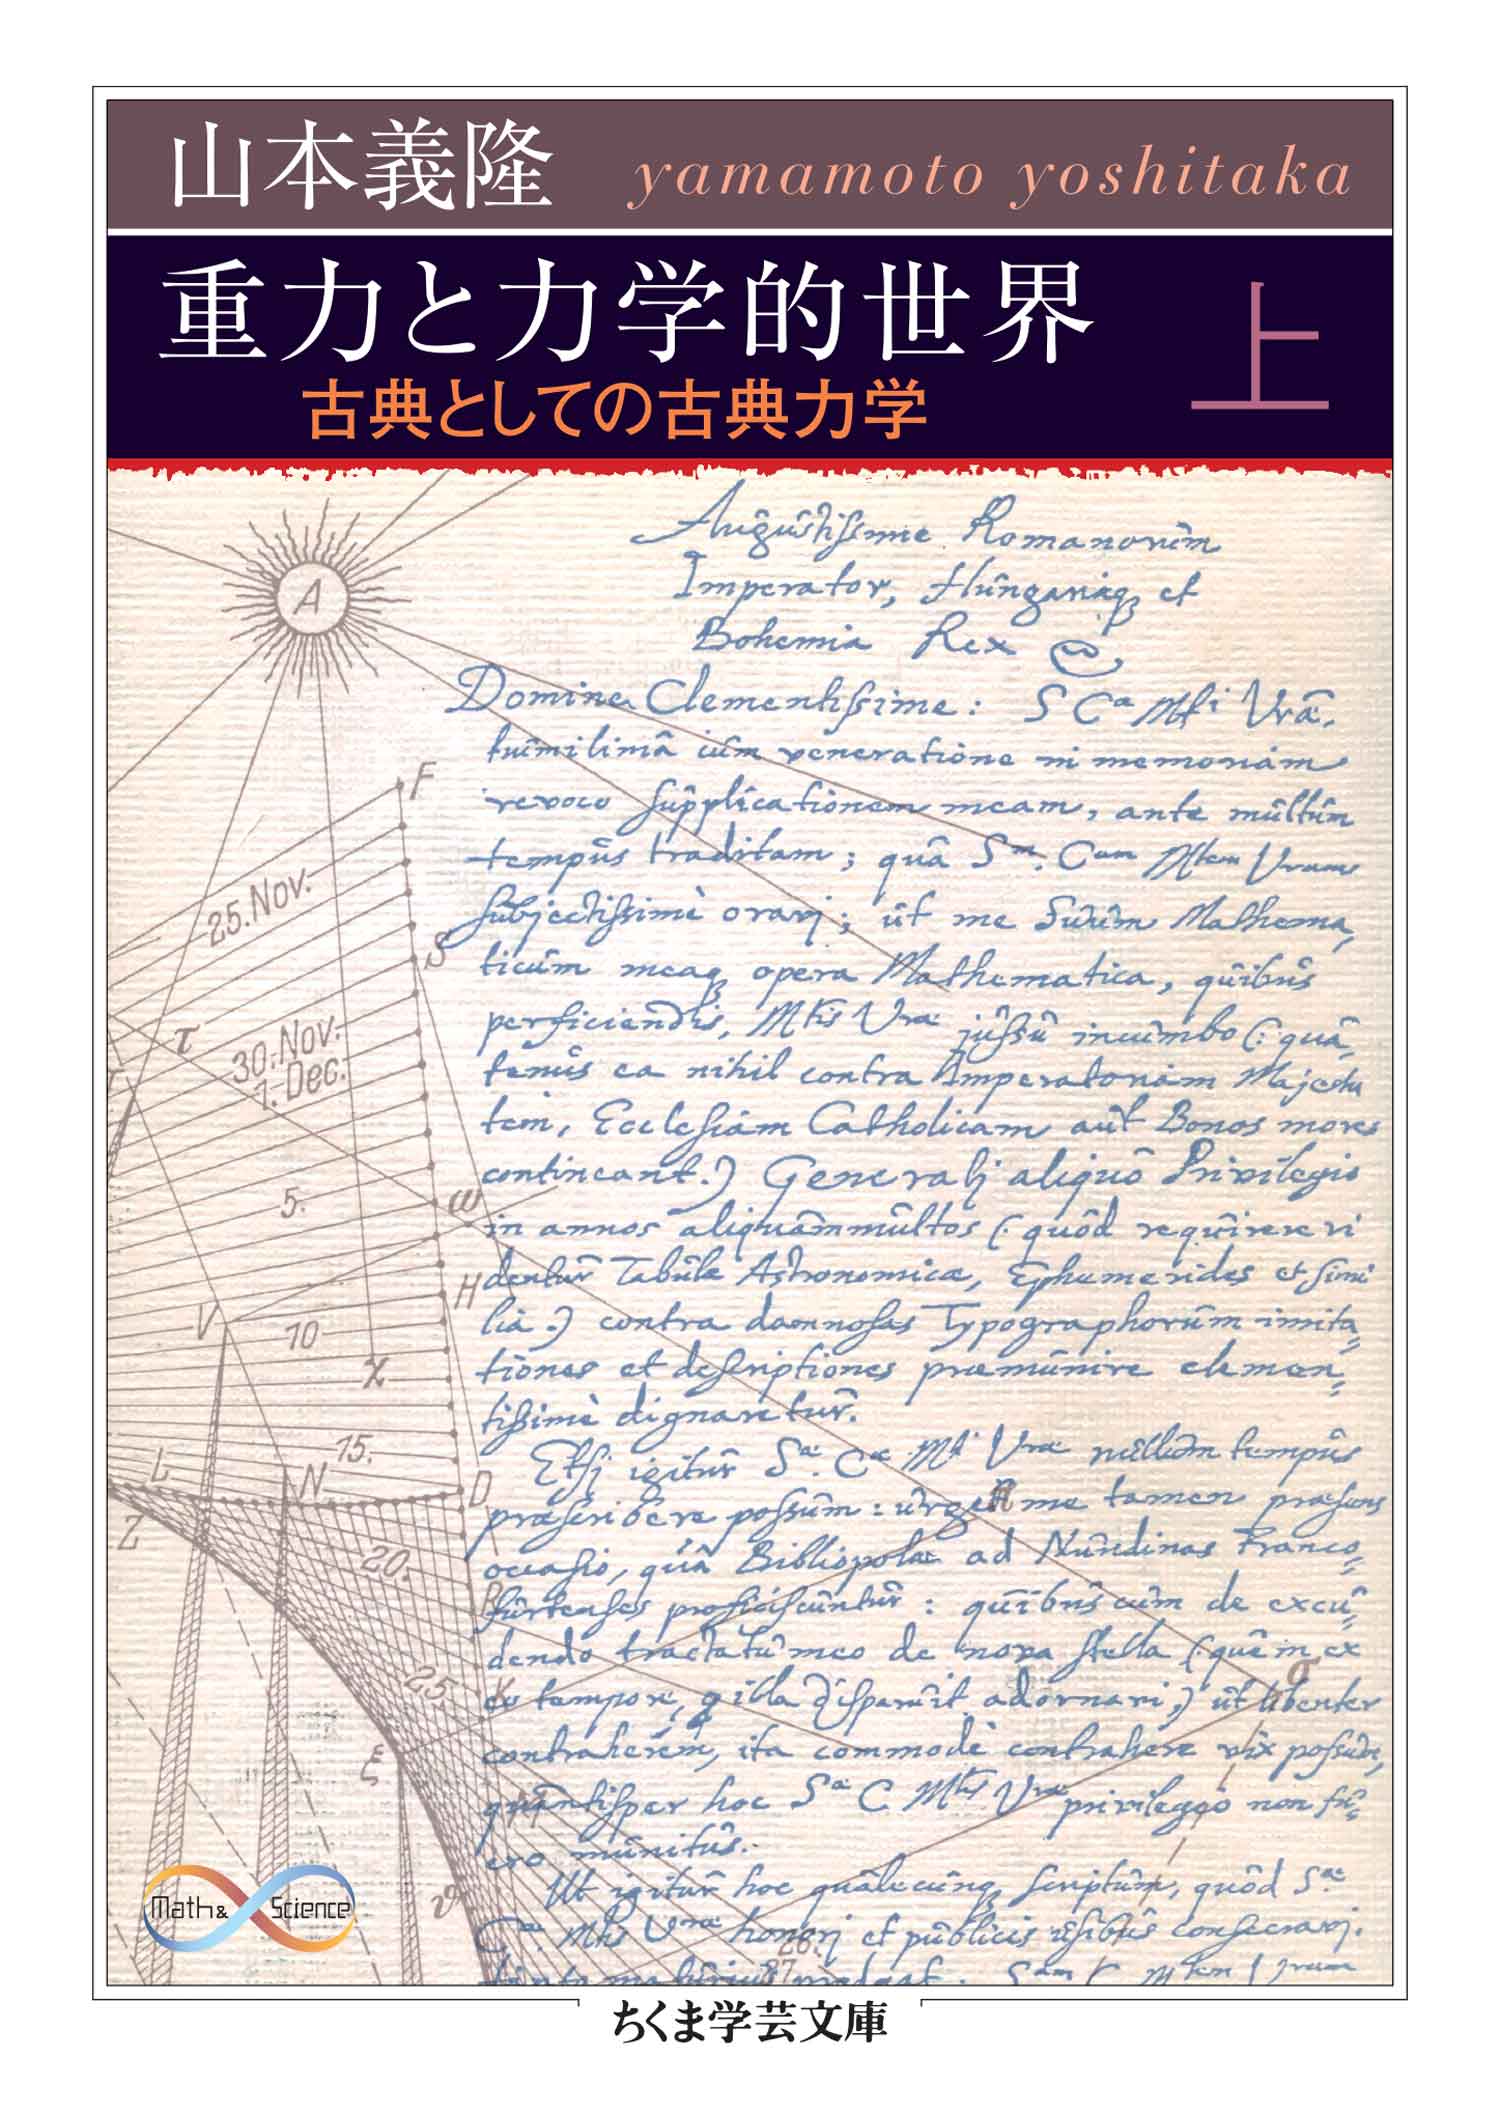 山本義隆 yamamoto yoshitaka
重力と力学的世界 上
古典としての古典力学
Augustissime Romanorum
Imperator, Hungariæq et
Bohemia Rex
Domine Clementissime: S Cᵃ Mᵗⁱ Vrâ.
humilimâ cum veneratione in memoriam
revoco supplicationem meam, ante multum
tempus traditam; quâ Sᵐ. Cᵃᵐ Mᵗᵉᵐ Vram
subjectissimè oravj; ut me Suum Mathema,
ticum meaq opera Mathematica, quibus
perficiendis, Mᵗⁱˢ Vræ jussu incumbo (: qua,
tenus ea nihil contra Imperatoriam Majesta
tem, Ecclesiam Catholicam aut Bonos mores
contineant.) Generalj aliquo Privilegio
in annos aliquammultos (: quod requirere vi
dentur Tabulæ Astronomicæ, Ephemerides et simi
lia.) contra damnosas Typographorum imita
tiones et descriptiones præmunire clemen,
tissimè dignaretur.
Etsj igitur Sᵃᵉ. Cᵃᵉ Mᵗⁱ Vræ nullum tempus
præscribere possum: urget me tamen præsens
occasio, quâ Bibliopolæ ad Nundinas Franco,
furtenses proficiscuntur: quibus cum de excu,
dendo tractatu meo de nova stella (quem ex
eo tempore, q illa disparuit adornavi,) ut libenter
contraherem, ita commodè contrahere vix possum,
quantisper hoc Sᵃᵉ C Mᵗⁱˢ Vræ privilegio non fu,
ero munitus.
Ut igitur hoc qualecunq scriptum, quod Sᵃᵉ
Cᵃᵉ. Mᵗⁱˢ Vræ honorj et publicis usibus consecravj.
A
F
25. Nov.
S
τ
30. Nov.
1. Dec.
5.
ω
H
V
10
χ
15.
L
N
D
Z
20.
25
σ
ξ
26.
27
Math & Science
ちくま学芸文庫